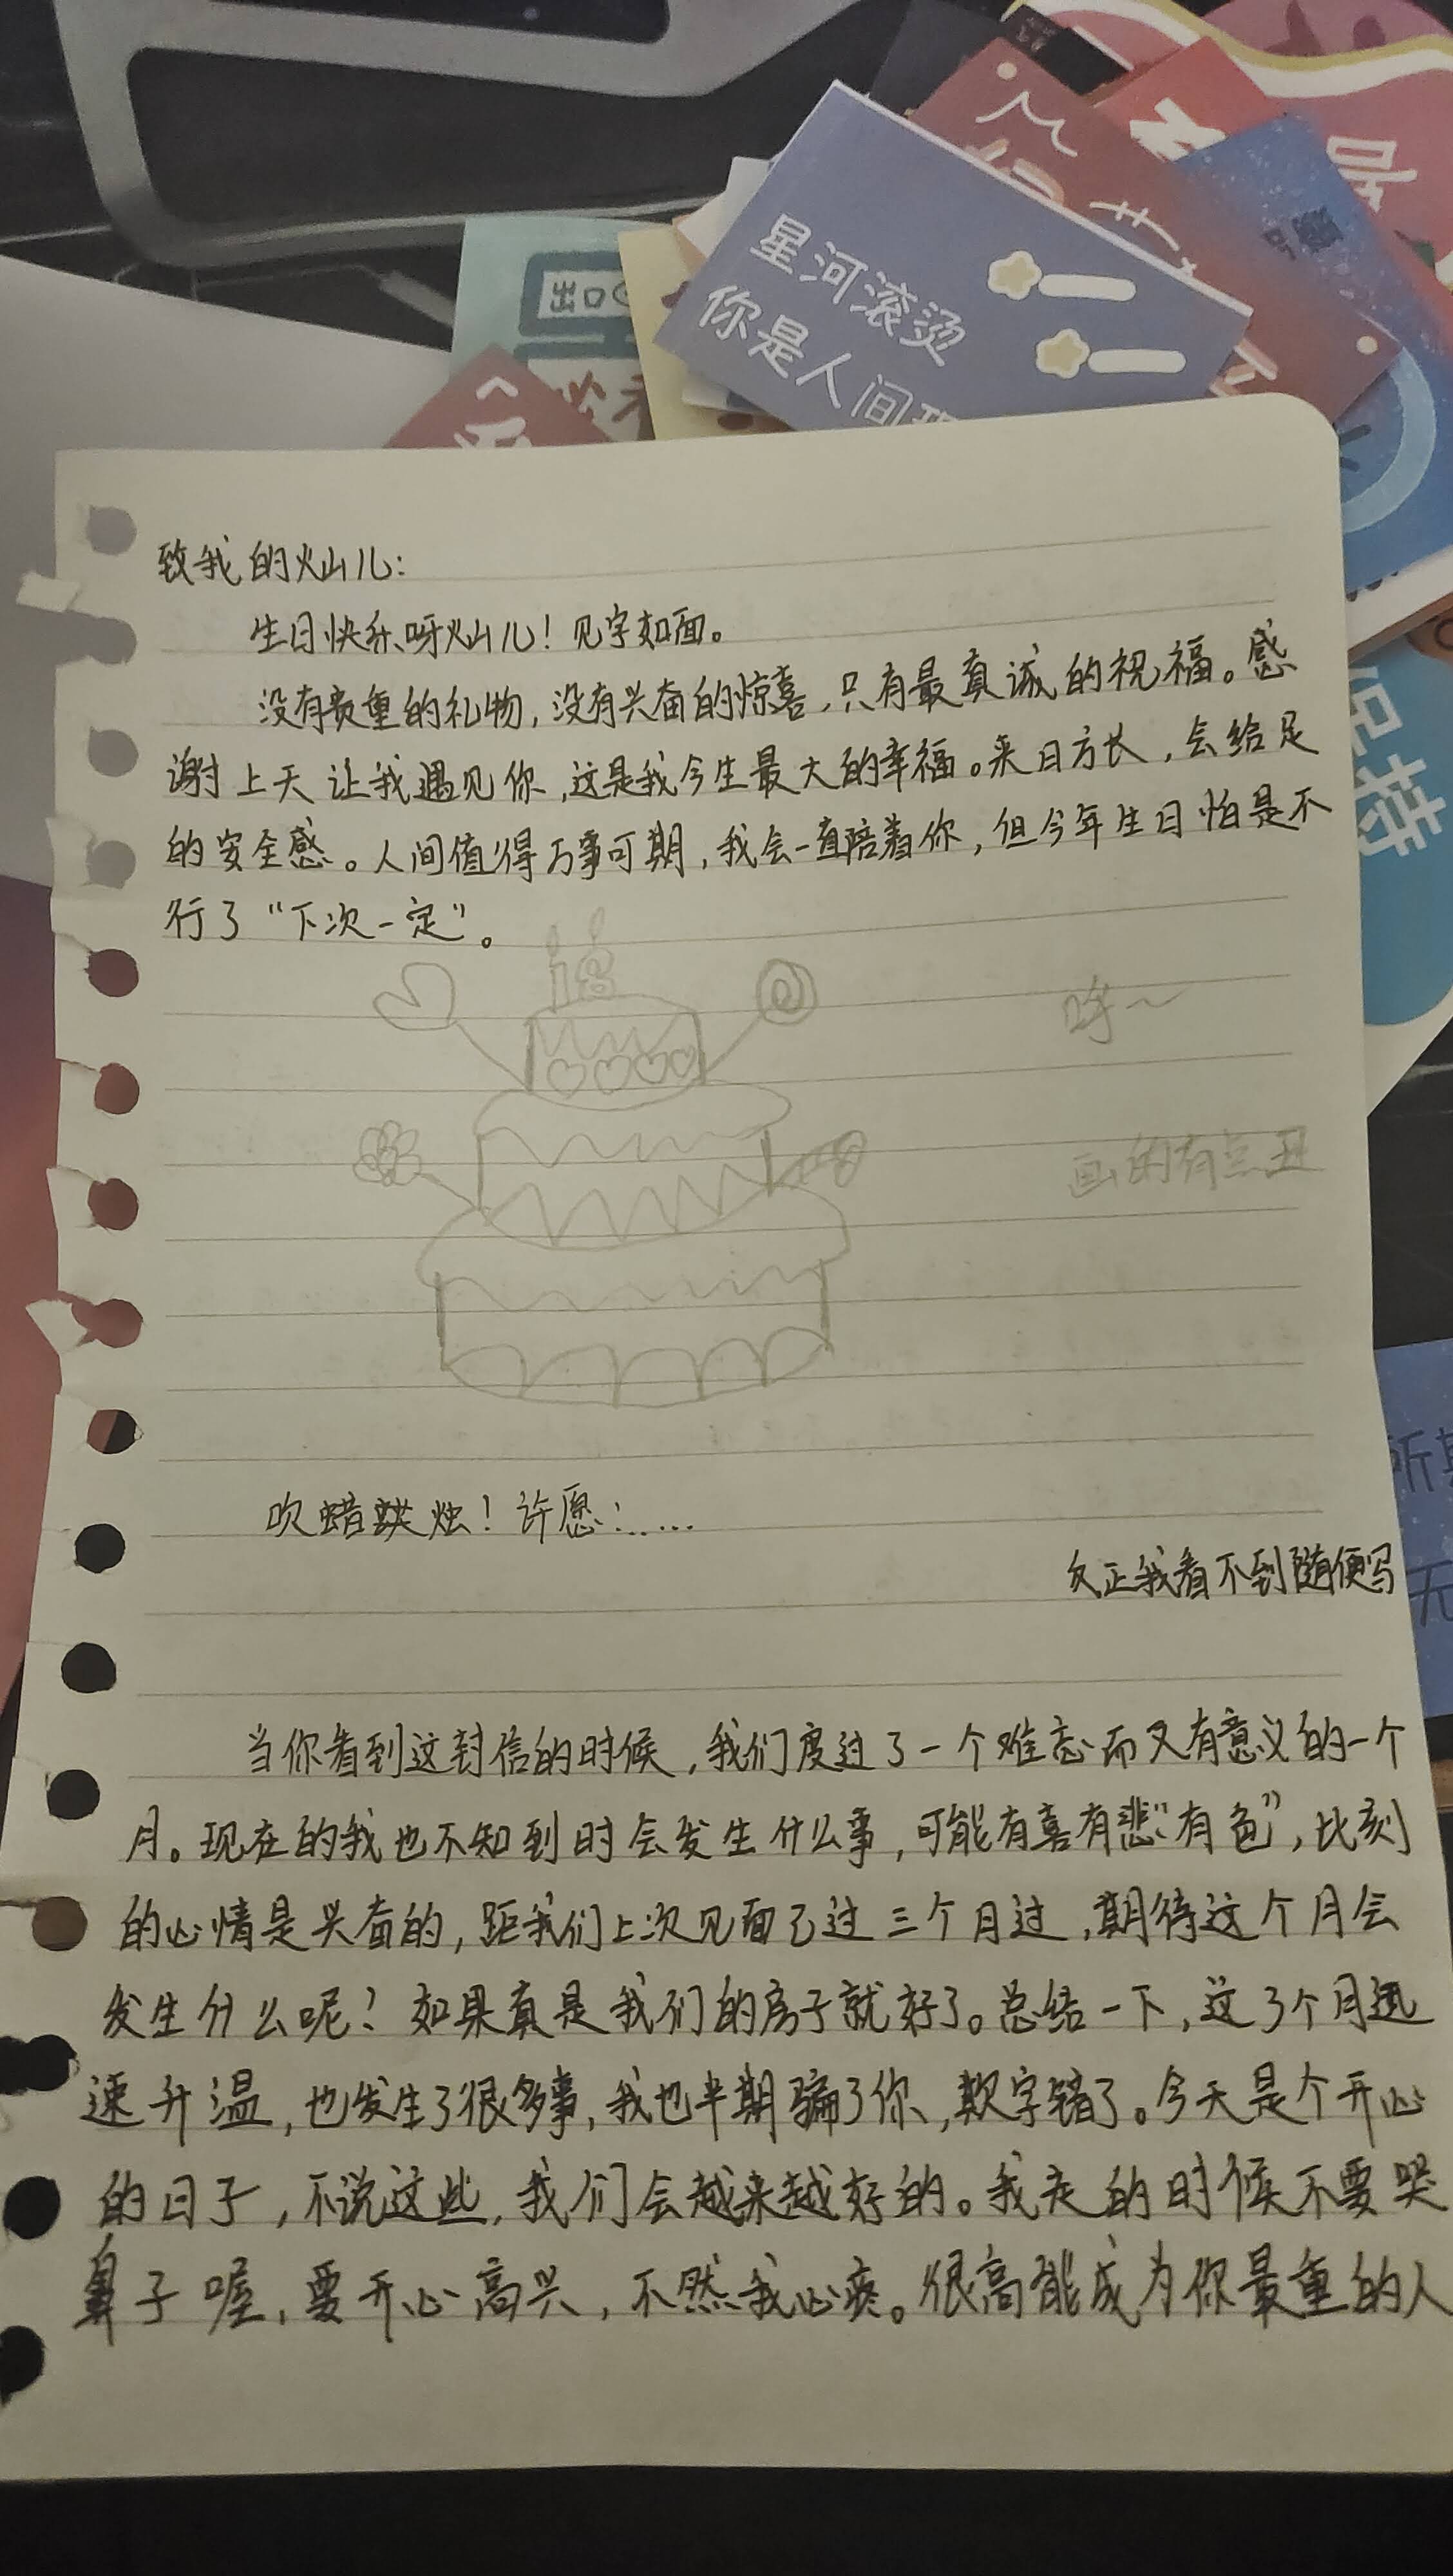 星河滚烫
你是人间
出口
保持
致我的灿儿：
生日快乐呀灿儿！见字如面。
没有贵重的礼物，没有兴奋的惊喜，只有最真诚的祝福。感
谢上天让我遇见你，这是我今生最大的幸福。来日方长，会给足
的安全感。人间值得万事可期，我会一直陪着你，但今年生日怕是不
行了“下次一定”。
18
哼～
画的有点丑
吹蜡烛！许愿：……
反正我看不到随便写
当你看到这封信的时候，我们度过了一个难忘而又有意义的一个
月。现在的我也不知到时会发生什么事，可能有喜有悲“有色”，比刻
的心情是兴奋的，距我们上次见面已过三个月过，期待这个月会
发生什么呢？如果真是我们的房子就好了。总结一下，这3个月迅
速升温，也发生了很多事，我也半期骗了你，欺字错了。今天是个开心
的日子，不说这些，我们会越来越好的。我走的时候不要哭
鼻子喔，要开心高兴，不然我心疼。很高能成为你最重的人